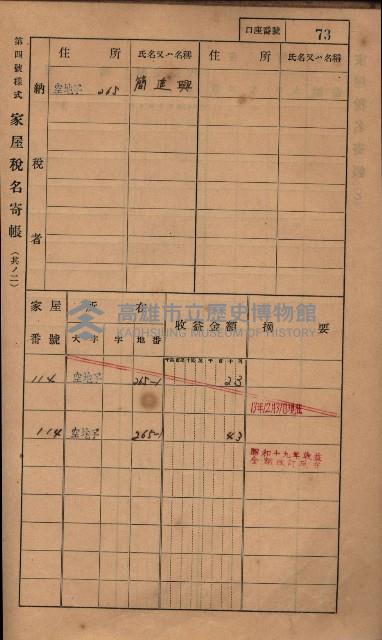 口座番號 73
第四號樣式 家屋稅名寄帳 (共ノ二)
納稅者
住所 氏名又ハ名稱 住所 氏名又ハ名稱
空地子 265 簡進興
家屋番號 所在 收益金額 摘要
大字 字 地番
高雄市立歷史博物館
KAOHSIUNG MUSEUM OF HISTORY
114 空地子 265-1 23
114 空地子 265-1 43
昭和十九年收益
金額改訂